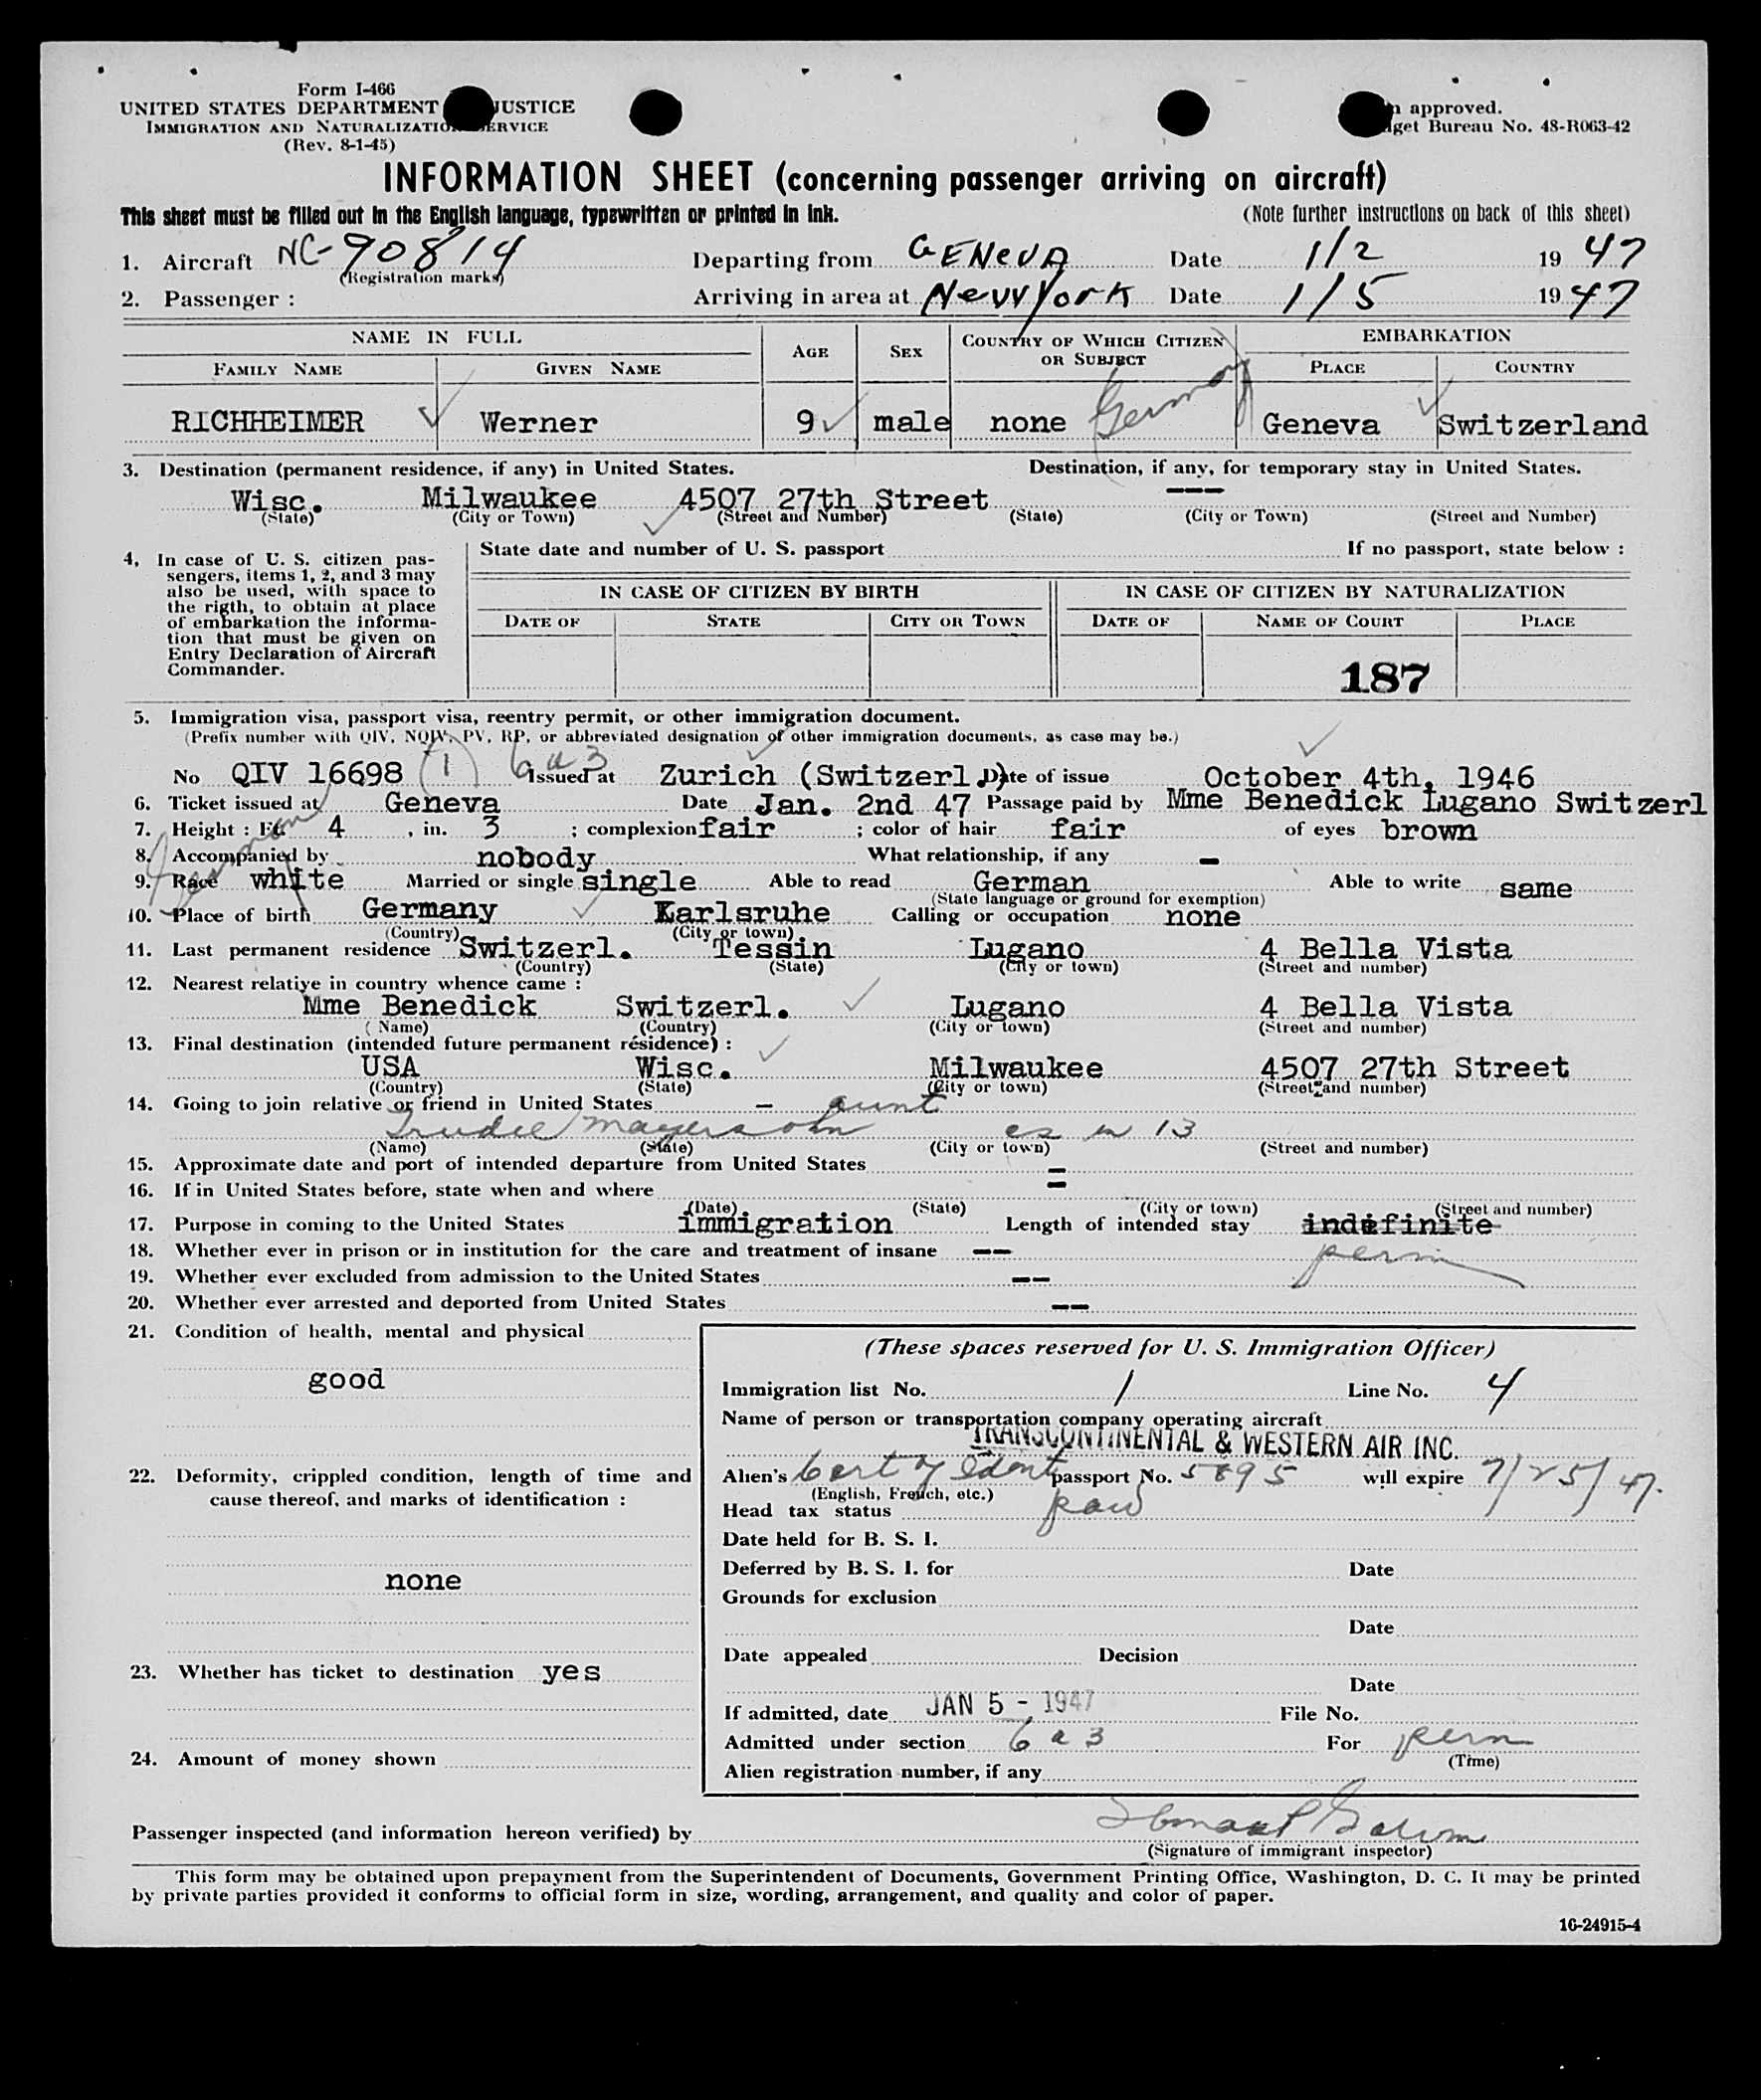 Form I-466
UNITED STATES DEPARTMENT JUSTICE
IMMIGRATION AND NATURALIZATION SERVICE
(Rev. 8-1-45)
approved.
Bureau No. 48-R063-42
INFORMATION SHEET (concerning passenger arriving on aircraft)
This sheet must be filled out in the English language, typewritten or printed in ink.
(Note further instructions on back of this sheet)
1. Aircraft NC-90814 Departing from GENEVA Date 1/2 1947
(Registration marks)
2. Passenger : Arriving in area at New York Date 1/5 1947
NAME IN FULL AGE SEX COUNTRY OF WHICH CITIZEN OR SUBJECT EMBARKATION
FAMILY NAME GIVEN NAME PLACE COUNTRY
RICHHEIMER Werner 9 male none Germany Geneva Switzerland
3. Destination (permanent residence, if any) in United States. Destination, if any, for temporary stay in United States.
Wisc. Milwaukee 4507 27th Street ---
(State) (City or Town) (Street and Number) (State) (City or Town) (Street and Number)
4. In case of U. S. citizen pas-
sengers, items 1, 2, and 3 may
also be used, with space to
the rigth, to obtain at place
of embarkation the informa-
tion that must be given on
Entry Declaration of Aircraft
Commander.
State date and number of U. S. passport If no passport, state below :
IN CASE OF CITIZEN BY BIRTH IN CASE OF CITIZEN BY NATURALIZATION
DATE OF STATE CITY OR TOWN DATE OF NAME OF COURT PLACE
187
5. Immigration visa, passport visa, reentry permit, or other immigration document.
(Prefix number with QIV, NQIV, PV, RP, or abbreviated designation of other immigration documents, as case may be.)
No QIV 16698 (1) 6 a 3 Issued at Zurich (Switzerl.) Date of issue October 4th, 1946
6. Ticket issued at Geneva Date Jan. 2nd 47 Passage paid by Mme Benedick Lugano Switzerl
7. Height : Ft. 4 , in. 3 ; complexion fair ; color of hair fair of eyes brown
8. Accompanied by nobody What relationship, if any -
9. Race white German Married or single single Able to read German Able to write same
(State language or ground for exemption)
10. Place of birth Germany Karlsruhe Calling or occupation none
(Country) (City or town)
11. Last permanent residence Switzerl. Tessin Lugano 4 Bella Vista
(Country) (State) (City or town) (Street and number)
12. Nearest relative in country whence came :
Mme Benedick Switzerl. Lugano 4 Bella Vista
(Name) (Country) (City or town) (Street and number)
13. Final destination (intended future permanent résidence) :
USA Wisc. Milwaukee 4507 27th Street
(Country) (State) (City or town) (Street and number)
14. Going to join relative or friend in United States - aunt
Trudie Mayersohn as in 13
(Name) (State) (City or town) (Street and number)
15. Approximate date and port of intended departure from United States -
16. If in United States before, state when and where -
(Date) (State) (City or town) (Street and number)
17. Purpose in coming to the United States immigration Length of intended stay indefinite
perm
18. Whether ever in prison or in institution for the care and treatment of insane --
19. Whether ever excluded from admission to the United States --
20. Whether ever arrested and deported from United States --
21. Condition of health, mental and physical
good
22. Deformity, crippled condition, length of time and
cause thereof, and marks of identification :
none
23. Whether has ticket to destination yes
24. Amount of money shown
(These spaces reserved for U. S. Immigration Officer)
Immigration list No. 1 Line No. 4
Name of person or transportation company operating aircraft
TRANSCONTINENTAL & WESTERN AIR INC.
Alien's Cert of Ident passport No. 5895 will expire 7/25/47.
(English, French, etc.)
Head tax status
Date held for B. S. I.
Deferred by B. S. I. for Date
Grounds for exclusion
Date
Date appealed Decision
Date
If admitted, date JAN 5 - 1947 File No.
Admitted under section 6 a 3 For perm
(Time)
Alien registration number, if any
Passenger inspected (and information hereon verified) by
(Signature of immigrant inspector)
This form may be obtained upon prepayment from the Superintendent of Documents, Government Printing Office, Washington, D. C. It may be printed
by private parties provided it conforms to official form in size, wording, arrangement, and quality and color of paper.
16-24915-4